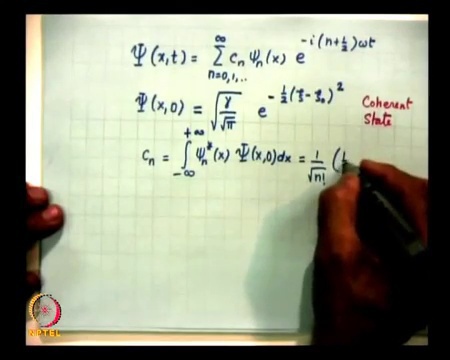 Ψ(x,t) = ∑_{n=0,1,..}^{∞} c_n ψ_n(x) e^{-i(n+½)ωt}
Ψ(x,0) = √(γ/√π) e^{-½(ξ-ξ₀)²} Coherent State
c_n = ∫_{-∞}^{+∞} ψ_n*(x) Ψ(x,0)dx = 1/√n! (½
NPTEL